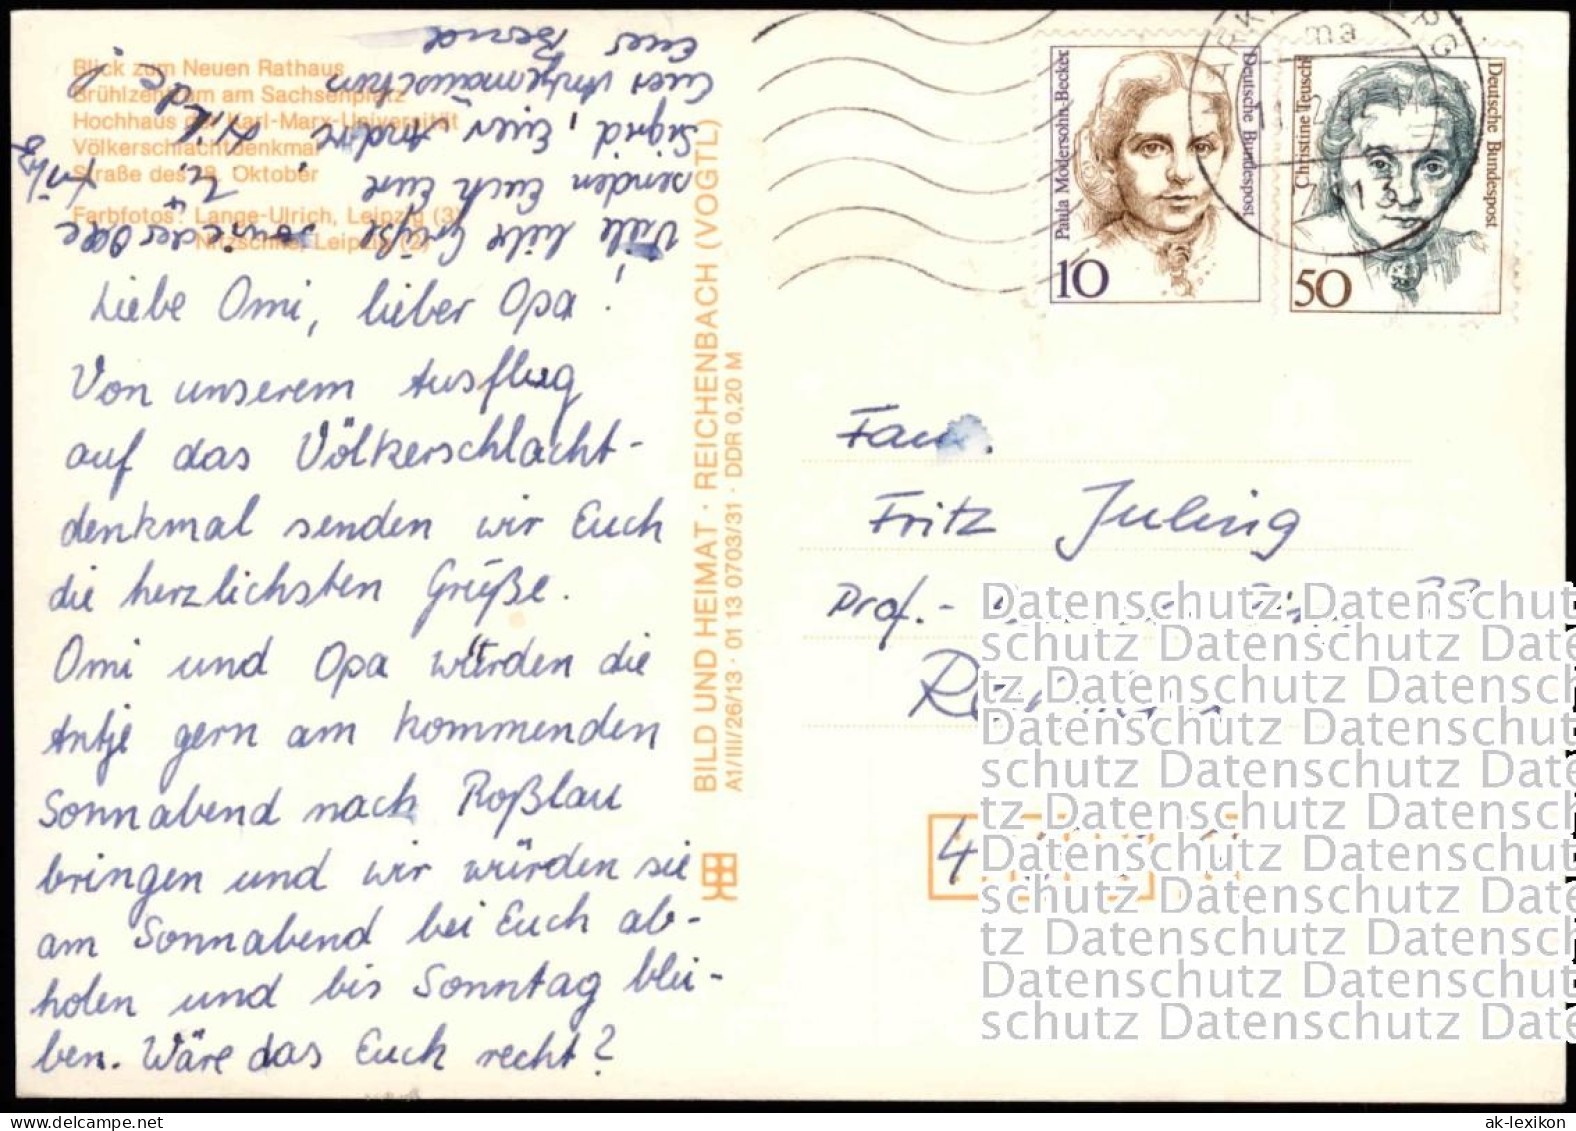 Blick zum Neuen Rathaus
Brühlzentrum am Sachsenplatz
Hochhaus der Karl-Marx-Universität
Völkerschlachtdenkmal
Straße des 18. Oktober
Farbfotos: Lange-Ulrich, Leipzig (3)
Nitzschke, Leipzig (2)
Liebe Omi, lieber Opa!
Von unserem Ausflug
auf das Völkerschlacht-
denkmal senden wir Euch
die herzlichsten Grüße.
Omi und Opa würden die
Antje gern am kommenden
Sonnabend nach Roßlau
bringen und wir würden sie
am Sonnabend bei Euch ab-
holen und bis Sonntag blei-
ben. Wäre das Euch recht?
Viele liebe Grüße
senden Euch Eure
Sigrid, Euer André
Euer Antjemäuschen
Euer Bernd
sowie der Opa
u.
BILD UND HEIMAT · REICHENBACH (VOGTL)
A1/III/26/13 · 01 13 0703/31 · DDR 0,20 M
Paula Modersohn-Becker
Deutsche Bundespost
10
Christine Teusch
Deutsche Bundespost
50
ma
7113
Fam.
Fritz Juling
Prof.-
4
Datenschutz Datenschut
schutz Datenschutz Date
tz Datenschutz Datensch
Datenschutz Datenschut
schutz Datenschutz Date
tz Datenschutz Datensch
Datenschutz Datenschut
schutz Datenschutz Date
tz Datenschutz Datensch
Datenschutz Datenschut
schutz Datenschutz Date
ak-lexikon